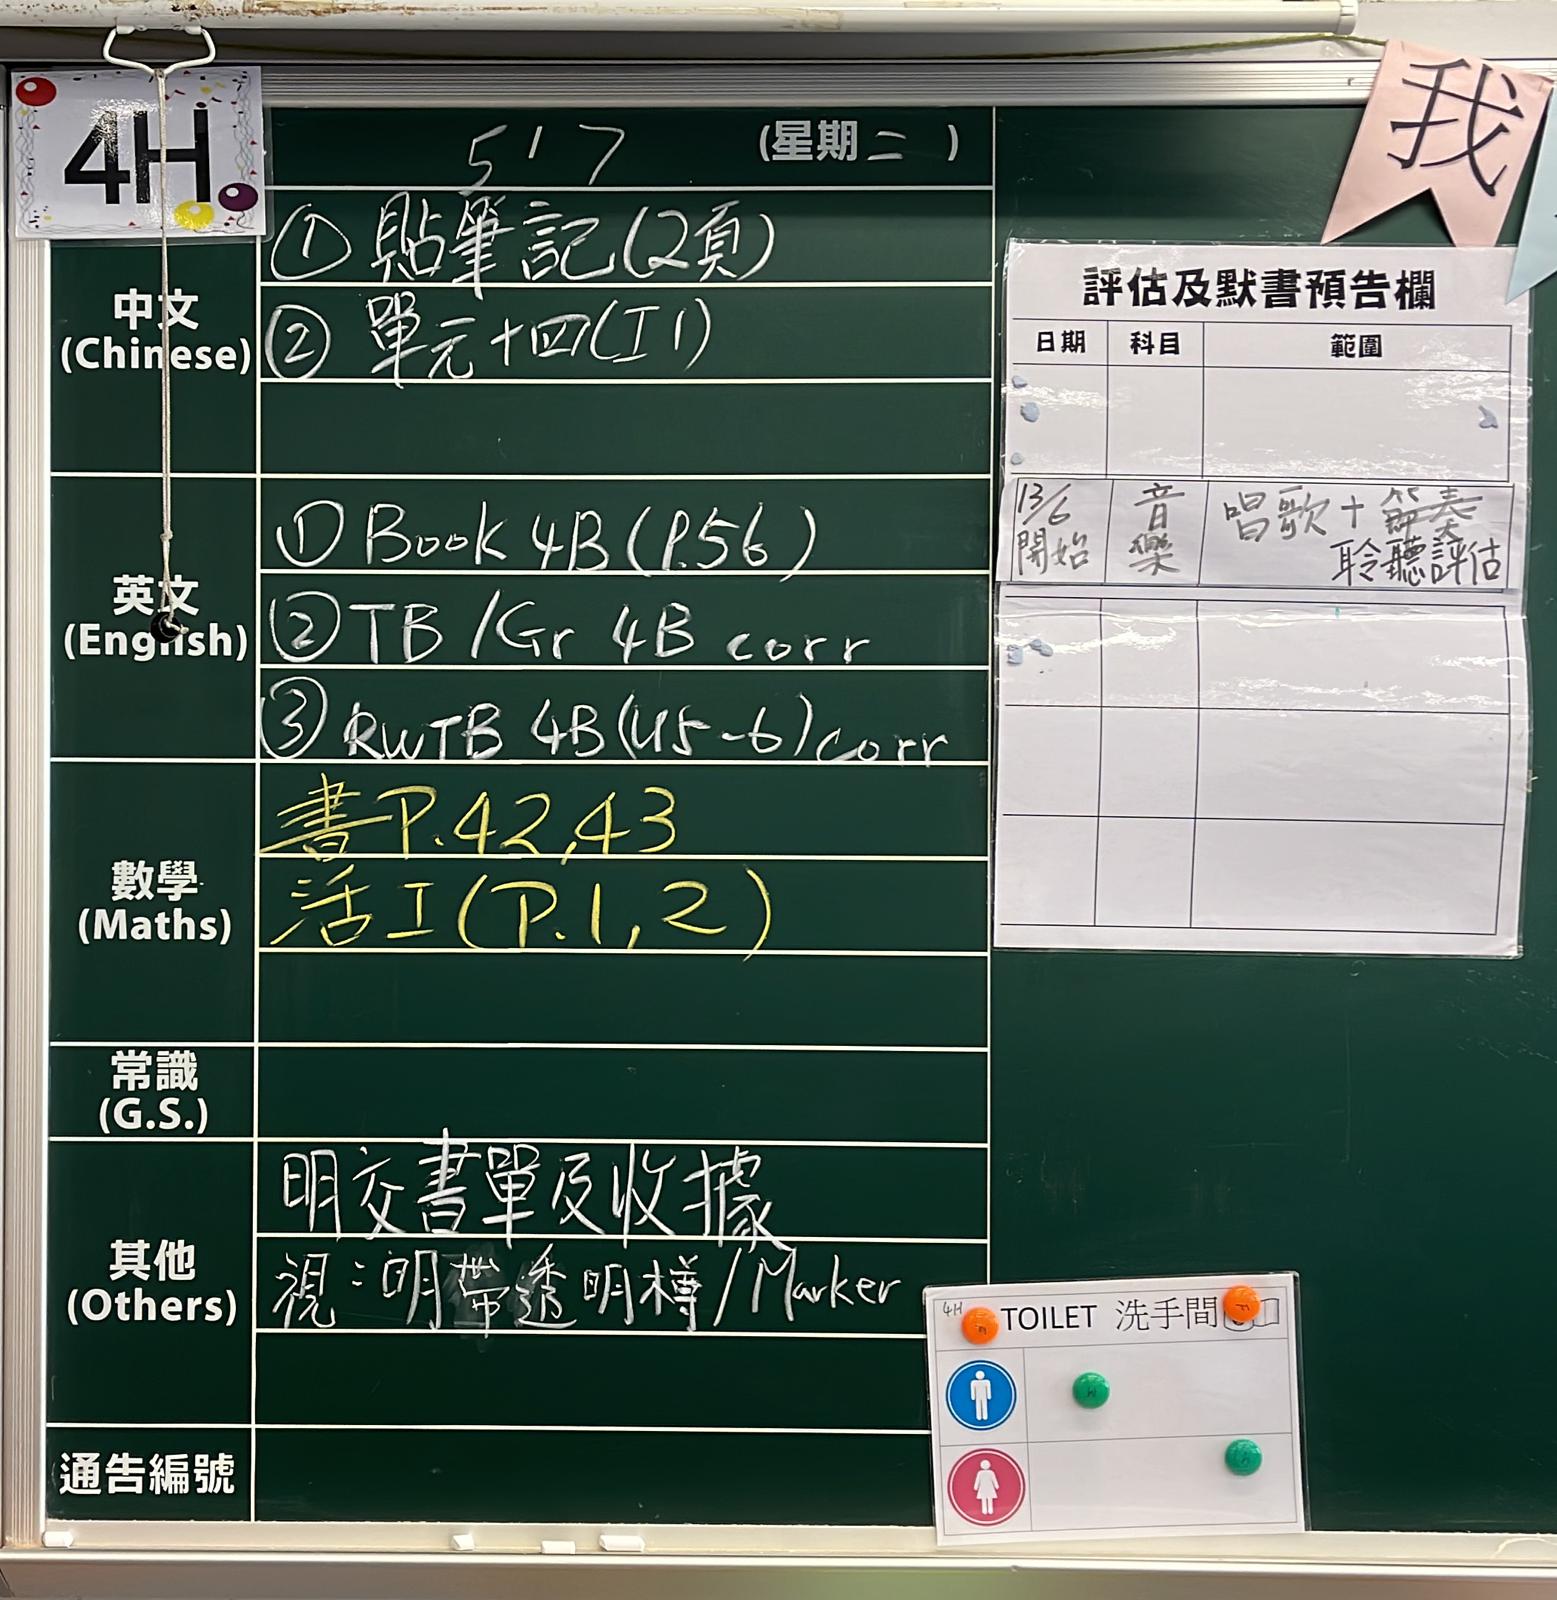 4H
5/7 (星期二)
中文
(Chinese)
① 貼筆記(2頁)
② 單元十四(I1)
英文
(English)
① Book 4B (P.56)
② TB /Gr 4B corr
③ RWTB 4B(U5-6)corr
數學
(Maths)
書P.42,43
活I(P.1,2)
常識
(G.S.)
其他
(Others)
明交書單及收據
視:明帶透明樽/Marker
通告編號
我
評估及默書預告欄
日期 科目 範圍
13/6 開始 音樂 唱歌+節奏
聆聽評估
4H TOILET 洗手間